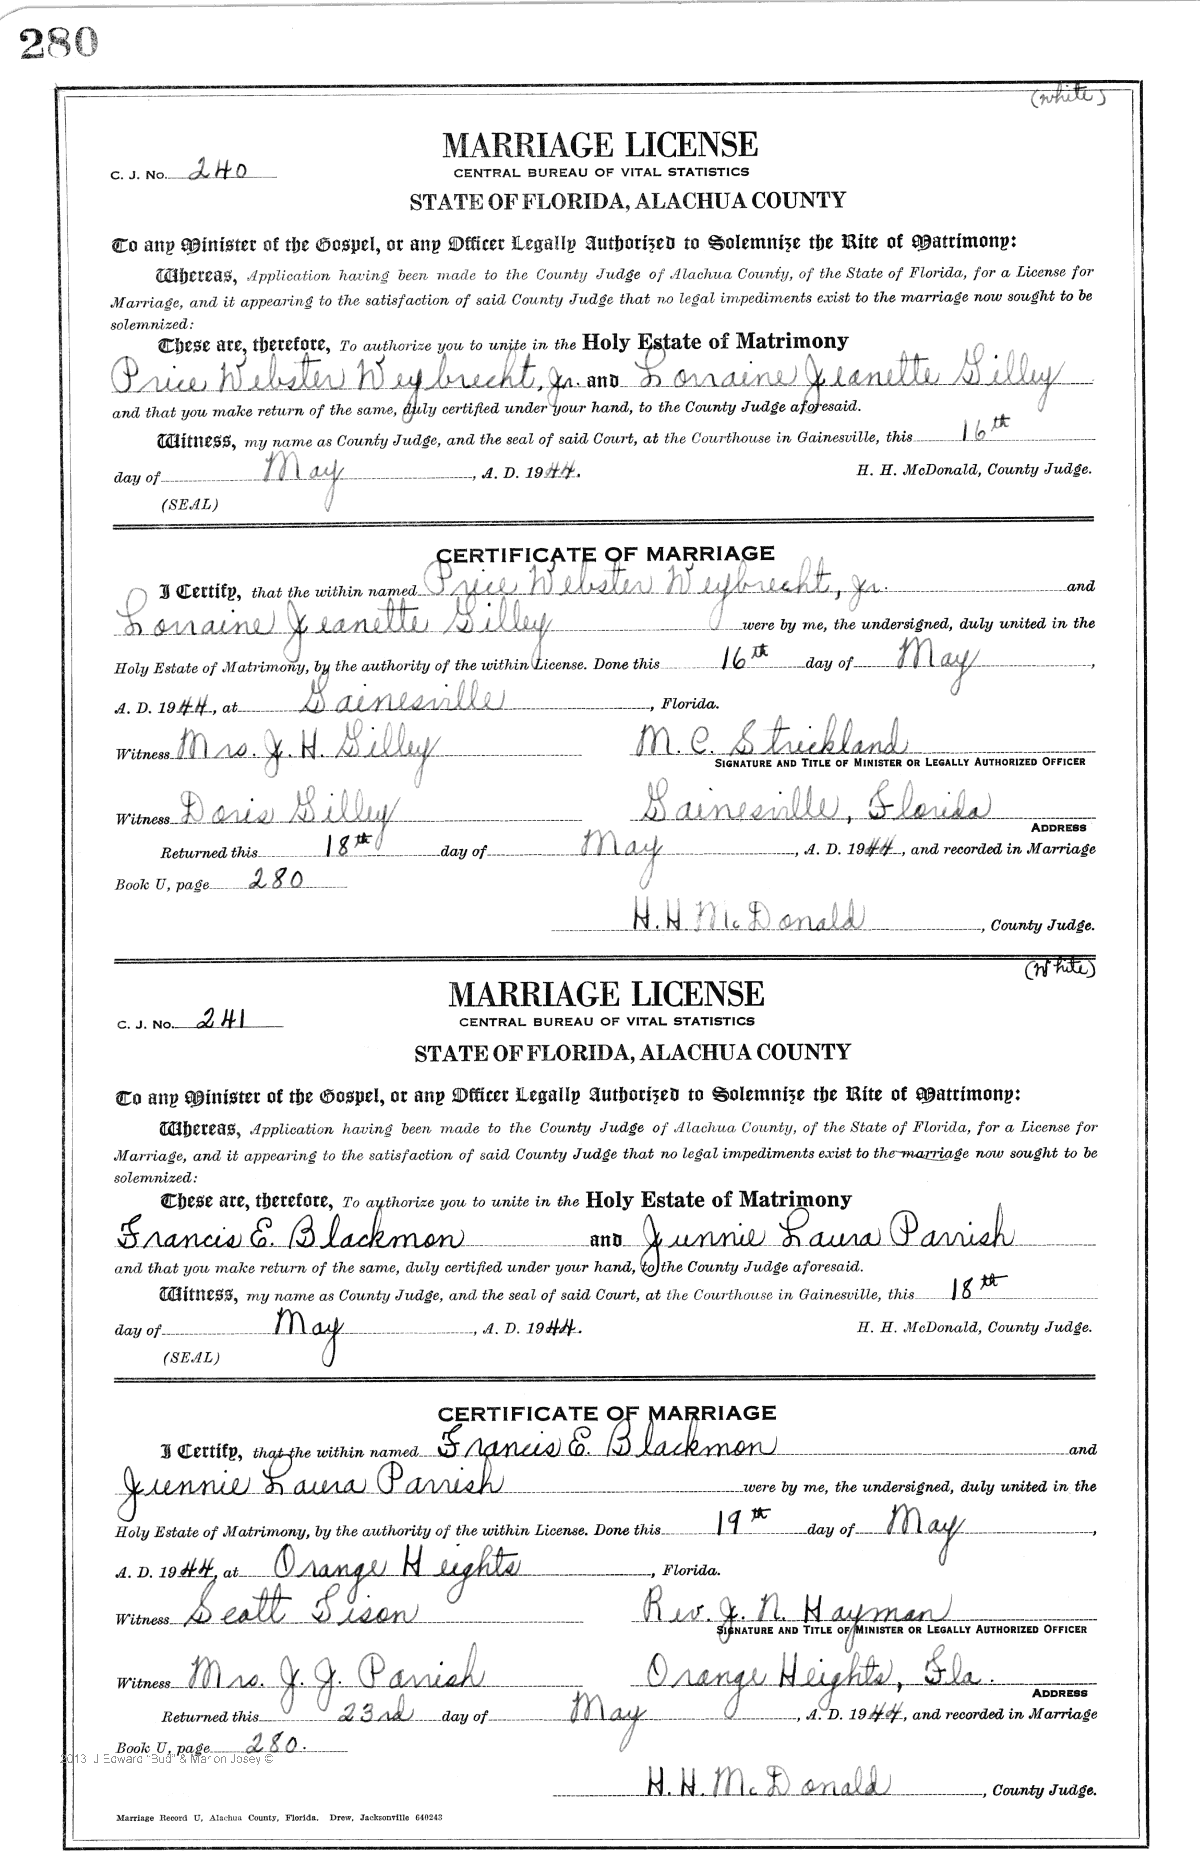 280
(White)
MARRIAGE LICENSE
C. J. No. 240
CENTRAL BUREAU OF VITAL STATISTICS
STATE OF FLORIDA, ALACHUA COUNTY
To any Minister of the Gospel, or any Officer Legally Authorized to Solemnize the Rite of Matrimony:
Whereas, Application having been made to the County Judge of Alachua County, of the State of Florida, for a License for
Marriage, and it appearing to the satisfaction of said County Judge that no legal impediments exist to the marriage now sought to be
solemnized:
These are, therefore, To authorize you to unite in the Holy Estate of Matrimony
Price Webster Weybrecht, Jr. and Lorraine Jeanette Gilley
and that you make return of the same, duly certified under your hand, to the County Judge aforesaid.
Witness, my name as County Judge, and the seal of said Court, at the Courthouse in Gainesville, this 16th
day of May, A. D. 1944. H. H. McDonald, County Judge.
(SEAL)
CERTIFICATE OF MARRIAGE
I Certify, that the within named Price Webster Weybrecht, Jr. and
Lorraine Jeanette Gilley were by me, the undersigned, duly united in the
Holy Estate of Matrimony, by the authority of the within License. Done this 16th day of May,
A. D. 1944, at Gainesville, Florida.
Witness Mrs. J. H. Gilley M. C. Strickland
SIGNATURE AND TITLE OF MINISTER OR LEGALLY AUTHORIZED OFFICER
Witness Doris Gilley Gainesville, Florida
ADDRESS
Returned this 18th day of May, A. D. 1944, and recorded in Marriage
Book U, page 280
H. H. McDonald, County Judge.
(White)
MARRIAGE LICENSE
C. J. No. 241
CENTRAL BUREAU OF VITAL STATISTICS
STATE OF FLORIDA, ALACHUA COUNTY
To any Minister of the Gospel, or any Officer Legally Authorized to Solemnize the Rite of Matrimony:
Whereas, Application having been made to the County Judge of Alachua County, of the State of Florida, for a License for
Marriage, and it appearing to the satisfaction of said County Judge that no legal impediments exist to the marriage now sought to be
solemnized:
These are, therefore, To authorize you to unite in the Holy Estate of Matrimony
Francis E. Blackmon and Junnie Laura Parrish
and that you make return of the same, duly certified under your hand, to the County Judge aforesaid.
Witness, my name as County Judge, and the seal of said Court, at the Courthouse in Gainesville, this 18th
day of May, A. D. 1944. H. H. McDonald, County Judge.
(SEAL)
CERTIFICATE OF MARRIAGE
I Certify, that the within named Francis E. Blackmon and
Junnie Laura Parrish were by me, the undersigned, duly united in the
Holy Estate of Matrimony, by the authority of the within License. Done this 19th day of May,
A. D. 1944, at Orange Heights, Florida.
Witness Scott Tison Rev. J. N. Hayman
SIGNATURE AND TITLE OF MINISTER OR LEGALLY AUTHORIZED OFFICER
Witness Mrs. J. J. Parrish Orange Heights, Fla.
ADDRESS
Returned this 23rd day of May, A. D. 1944, and recorded in Marriage
Book U, page 280.
2013 J Edward "Bud" & Marion Josey ©
H. H. McDonald, County Judge.
Marriage Record U, Alachua County, Florida. Drew, Jacksonville 640243